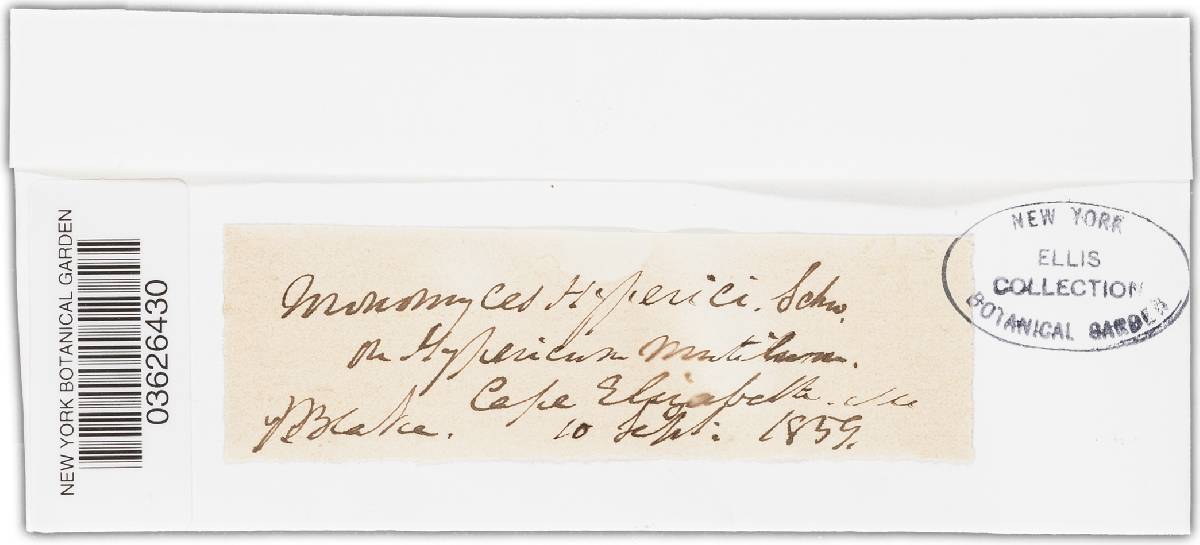 NEW YORK BOTANICAL GARDEN
03626430
Monomyces Hyperici. Schw.
on Hypericum mutilum.
Cape Elizabeth. Me
Blake. 10 Sept. 1859.
NEW YORK
ELLIS
COLLECTION
BOTANICAL GARDEN